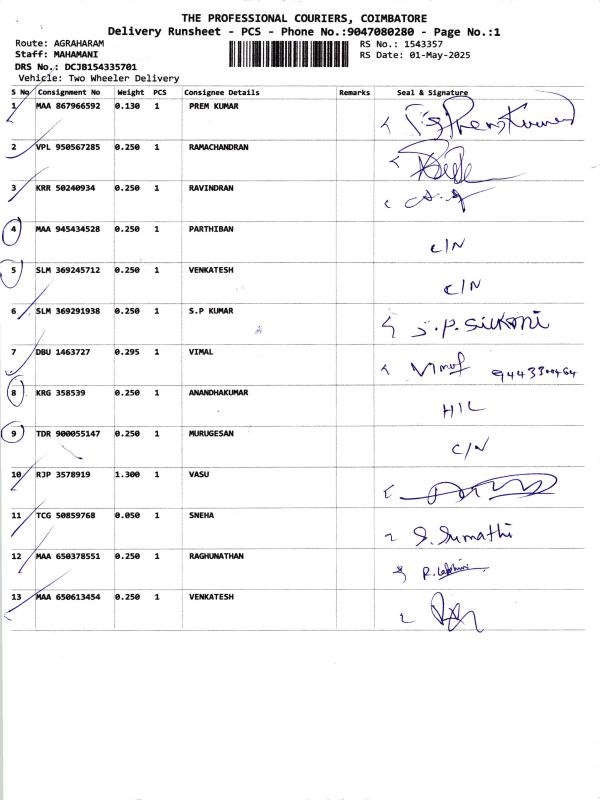 THE PROFESSIONAL COURIERS, COIMBATORE
Delivery Runsheet - PCS - Phone No.:9047080280 - Page No.:1
Route: AGRAHARAM RS No.: 1543357
Staff: MAHAMANI RS Date: 01-May-2025
DRS No.: DCJB154335701
Vehicle: Two Wheeler Delivery
S No Consignment No Weight PCS Consignee Details Remarks Seal & Signature
1 MAA 867966592 0.130 1 PREM KUMAR
2 VPL 950567285 0.250 1 RAMACHANDRAN
3 KRR 50240934 0.250 1 RAVINDRAN
4 MAA 945434528 0.250 1 PARTHIBAN C/N
5 SLM 369245712 0.250 1 VENKATESH C/N
6 SLM 369291938 0.250 1 S.P KUMAR
7 DBU 1463727 0.295 1 VIMAL Vimal
8 KRG 358539 0.250 1 ANANDHAKUMAR H/L
9 TDR 900055147 0.250 1 MURUGESAN C/N
10 RJP 3578919 1.300 1 VASU
11 TCG 50859768 0.050 1 SNEHA S. Sumathi
12 MAA 650378551 0.250 1 RAGHUNATHAN
13 MAA 650613454 0.250 1 VENKATESH